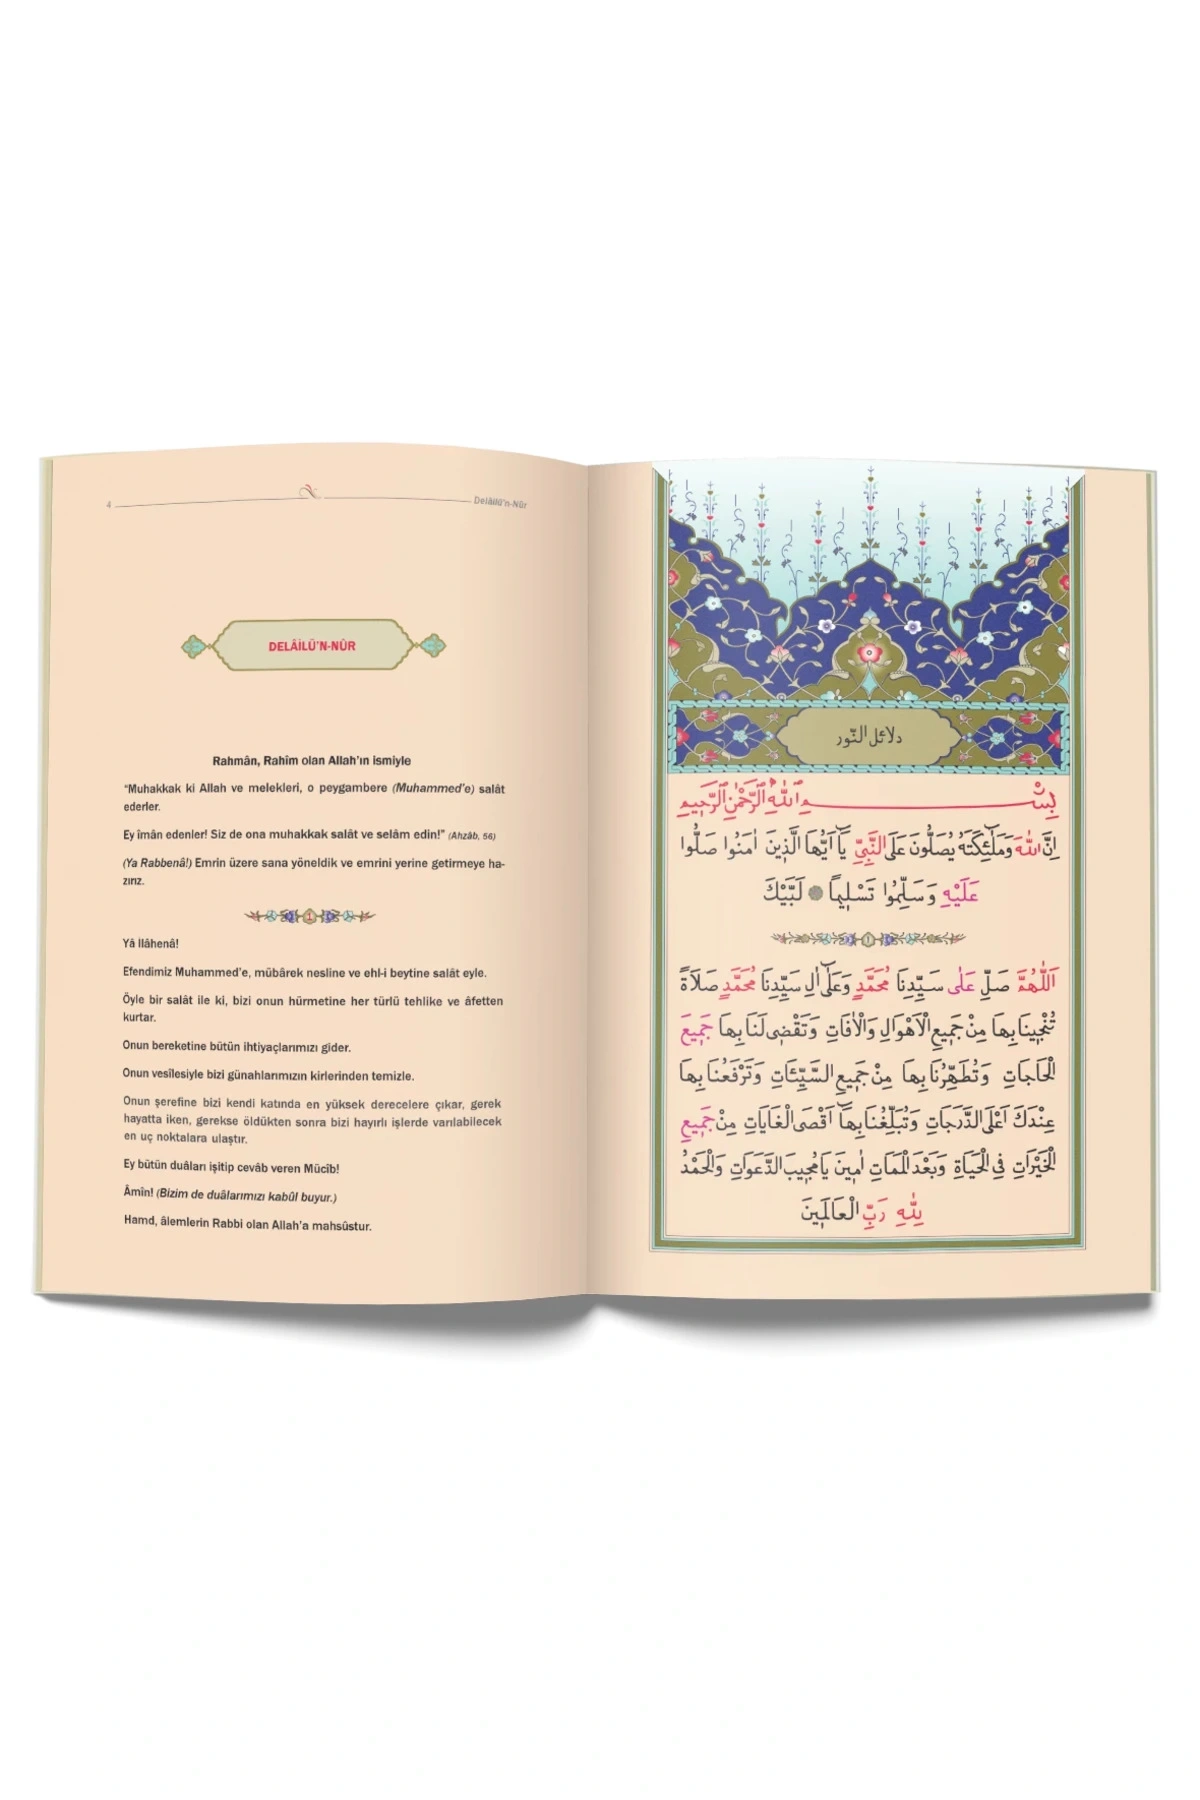 4
Delâilü'n-Nûr
DELÂİLÜ'N-NÛR
Rahmân, Rahîm olan Allah'ın ismiyle
"Muhakkak ki Allah ve melekleri, o peygambere (Muhammed'e) salât
ederler.
Ey îmân edenler! Siz de ona muhakkak salât ve selâm edin!" (Ahzâb, 56)
(Ya Rabbenâ!) Emrin üzere sana yöneldik ve emrini yerine getirmeye ha-
zırız.
1
Yâ İlâhenâ!
Efendimiz Muhammed'e, mübârek nesline ve ehl-i beytine salât eyle.
Öyle bir salât ile ki, bizi onun hürmetine her türlü tehlike ve âfetten
kurtar.
Onun bereketine bütün ihtiyaçlarımızı gider.
Onun vesîlesiyle bizi günahlarımızın kirlerinden temizle.
Onun şerefine bizi kendi katında en yüksek derecelere çıkar, gerek
hayatta iken, gerekse öldükten sonra bizi hayırlı işlerde varılabilecek
en uç noktalara ulaştır.
Ey bütün duâları işitip cevâb veren Mücîb!
Âmîn! (Bizim de duâlarımızı kabûl buyur.)
Hamd, âlemlerin Rabbi olan Allah'a mahsûstur.
دلائل النّور
بِسْمِ اللّٰهِ الرَّحْمٰنِ الرَّحِيمِ
اِنَّ اللّٰهَ وَمَلٰٓئِكَتَهُ يُصَلُّونَ عَلَى النَّبِيِّ يَٓا اَيُّهَا الَّذِينَ اٰمَنُوا صَلُّوا
عَلَيْهِ وَسَلِّمُوا تَسْلِيمًا ۞ لَبَّيْكَ
١
اَللّٰهُمَّ صَلِّ عَلٰى سَيِّدِنَا مُحَمَّدٍ وَعَلٰٓى اٰلِ سَيِّدِنَا مُحَمَّدٍ صَلَاةً
تُنْجِينَا بِهَا مِنْ جَمِيعِ الْاَهْوَالِ وَالْاٰفَاتِ وَتَقْضِى لَنَا بِهَا جَمِيعَ
الْحَاجَاتِ وَتُطَهِّرُنَا بِهَا مِنْ جَمِيعِ السَّيِّئَاتِ وَتَرْفَعُنَا بِهَا
عِنْدَكَ اَعْلَى الدَّرَجَاتِ وَتُبَلِّغُنَا بِهَٓا اَقْصَى الْغَايَاتِ مِنْ جَمِيعِ
الْخَيْرَاتِ فِى الْحَيَاةِ وَبَعْدَ الْمَمَاتِ اٰمِينَ يَا مُجِيبَ الدَّعَوَاتِ وَالْحَمْدُ
لِلّٰهِ رَبِّ الْعَالَمِينَ